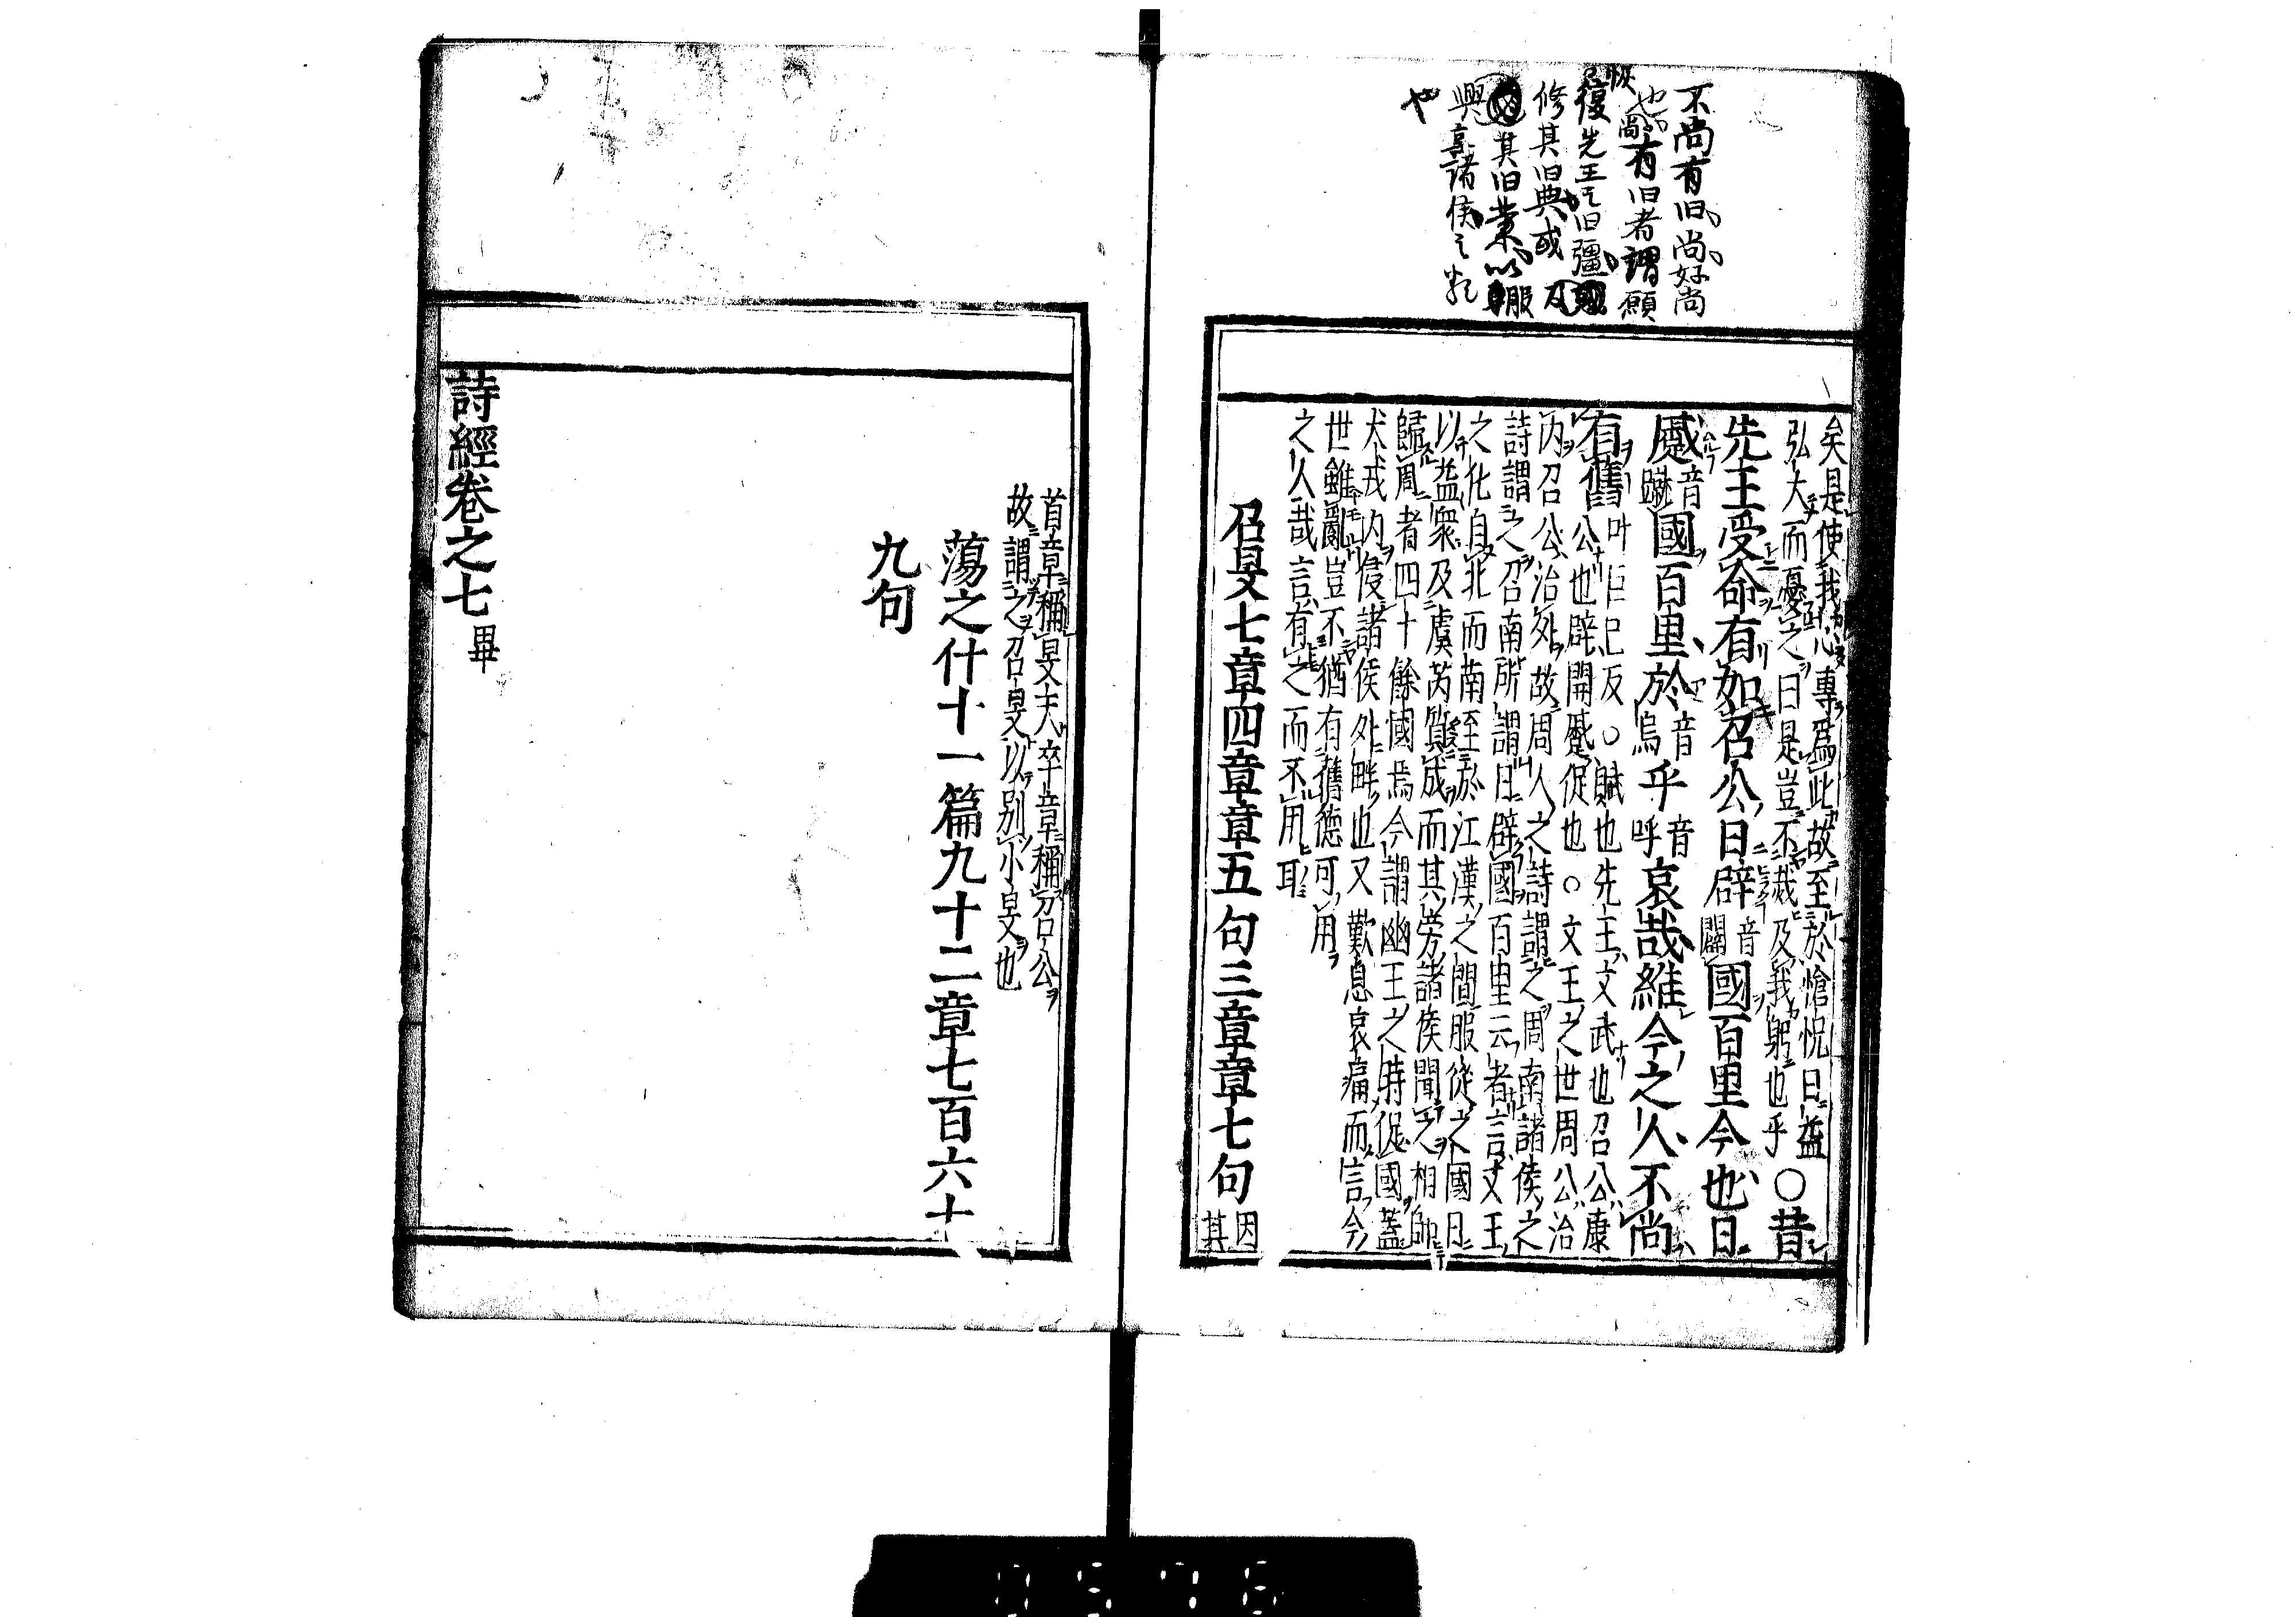 不尚有旧尚好尚
也尚有旧者謂願
恢復先王之旧疆
修其旧典或
其旧業以服
興享諸侯之
也
矣是使我心專爲此故至於愴怳日益
弘大而憂之曰是豈不烖及我躬也乎
○昔
先王受命有如召公日辟音闢國百里今也日
蹙音蹴國百里於音烏乎音呼哀哉維今之人不尚
有舊叶巨已反○賦也先王文武也召公康
公也辟開蹙促也○文王之世周公治
内召公治外故周人之詩謂之周南諸侯之
詩謂之召南所謂日辟國百里云者言文王
之化自北而南至於江漢之間服從之國日
以益衆及虞芮質成而其旁諸侯聞之相帥
歸周者四十餘國焉今謂幽王之時促國蓋
犬戎内侵諸侯外畔也又歎息哀痛而言今
世雖亂豈不猶有舊德可用
之人哉言有之而不用耳
召旻七章四章章五句三章章七句因其
首章稱旻天卒章稱召公
故謂之召旻以别小旻也
蕩之什十一篇九十二章七百六十
九句
詩經卷之七畢